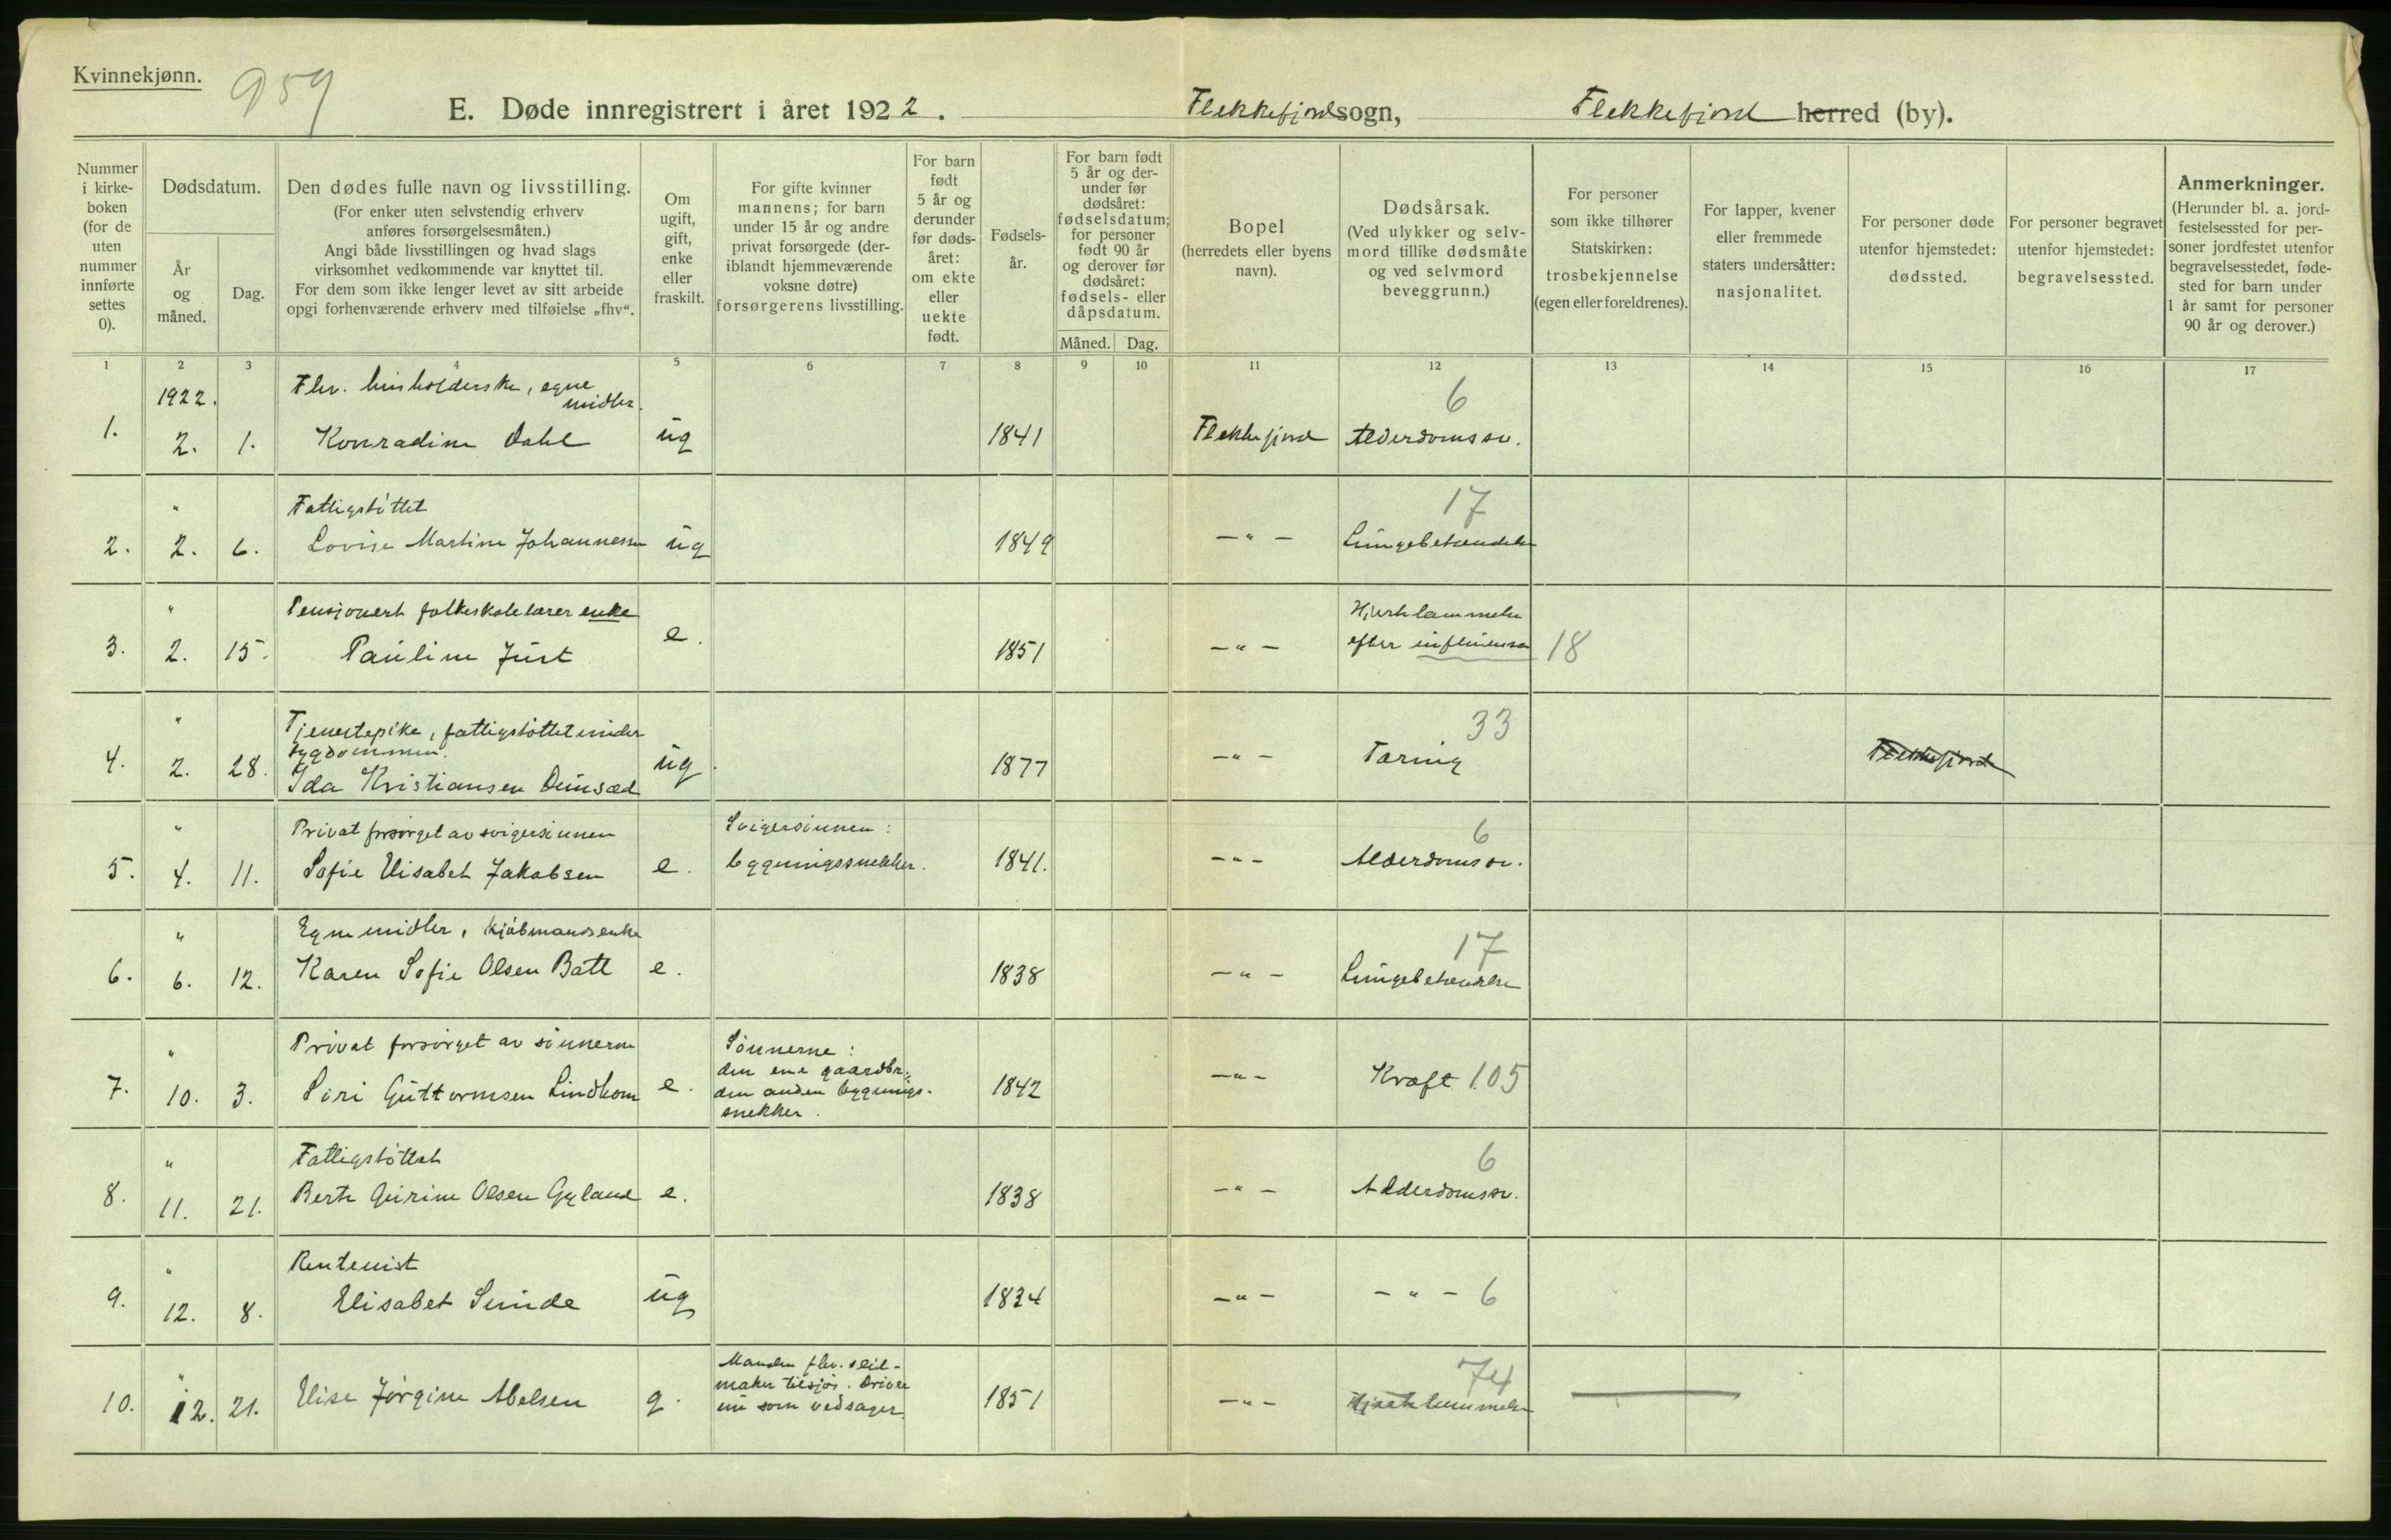 Kvinnekjønn.
959
E. Døde innregistrert i året 1922. Flekkefjord sogn, Flekkefjord herred (by).
Nummer i kirke-boken (for de uten nummer innførte settes 0).
Dødsdatum.
År og måned.
Dag.
Den dødes fulle navn og livsstilling.
(For enker uten selvstendig erhverv
anføres forsørgelsesmåten.)
Angi både livsstillingen og hvad slags
virksomhet vedkommende var knyttet til.
For dem som ikke lenger levet av sitt arbeide
opgi forhenværende erhverv med tilføielse „fhv“.
Om ugift, gift, enke eller fraskilt.
For gifte kvinner
mannens; for barn
under 15 år og andre
privat forsørgede (der-
iblandt hjemmeværende
voksne døtre)
forsørgerens livsstilling.
For barn
født
5 år og
derunder
før døds-
året:
om ekte
eller
uekte
født.
Fødsels-
år.
For barn født
5 år og der-
under før
dødsåret:
fødselsdatum;
for personer
født 90 år
og derover før
dødsåret:
fødsels- eller
dåpsdatum.
Måned. Dag.
Bopel
(herredets eller byens
navn).
Dødsårsak.
(Ved ulykker og selv-
mord tillike dødsmåte
og ved selvmord
beveggrunn.)
For personer
som ikke tilhører
Statskirken:
trosbekjennelse
(egen eller foreldrenes).
For lapper, kvener
eller fremmede
staters undersåtter:
nasjonalitet.
For personer døde
utenfor hjemstedet:
dødssted.
For personer begravet
utenfor hjemstedet:
begravelsessted.
Anmerkninger.
(Herunder bl. a. jord-
festelsessted for per-
soner jordfestet utenfor
begravelsesstedet, føde-
sted for barn under
1 år samt for personer
90 år og derover.)
1 2 3 4 5 6 7 8 9 10 11 12 13 14 15 16 17
1922. Fhv. husholderske, egne midler. 6
1. 2. 1. Konradine Dahl ug 1841 Flekkefjord Alderdomssv.
" Fattigstøttet 17
2. 2. 6. Lovise Martine Johannesen ug 1849 — " — Lungebetændelse
" Pensjonert folkeskolelærerenke Hjertelammelse
3. 2. 15. Pauline Just e. 1851 — " — efter influensa 18
" Tjenestepike, fattigstøttet under sygdommen. 33
4. 2. 28. Ida Kristiansen ug. 1877 — " — Tæring Flekkefjord
" Privat forsørget av svigersønnen Svigersønnen: 6
5. 4. 11. Sofie Elisabet Jakobsen e. bygningssnekker. 1841. — " — Alderdomssv.
" Egne midler, kjøbmandsenke 17
6. 6. 12. Karen Sofie Olsen Batt e. 1838 — " — Lungebetændelse
" Privat forsørget av sønnerne Sønnerne:
den ene gaardbr.,
7. 10. 3. Siri Guttormsen Lindhom e. den anden bygnings- 1842 — " — Kræft 105
snekker.
" Fattigstøttet 6
8. 11. 21. Berte Gurine Olsen Gyland e. 1838 — " — Alderdomssv.
" Rentenist
9. 12. 8. Elisabet Sunde ug 1834 — " — — " — 6
" Manden fhv. seil- 74
maker tilsjøs. Driver
10. 12. 21. Elise Jørgine Abelsen g. nu som vedsager. 1851 — " — Hjertelammelse